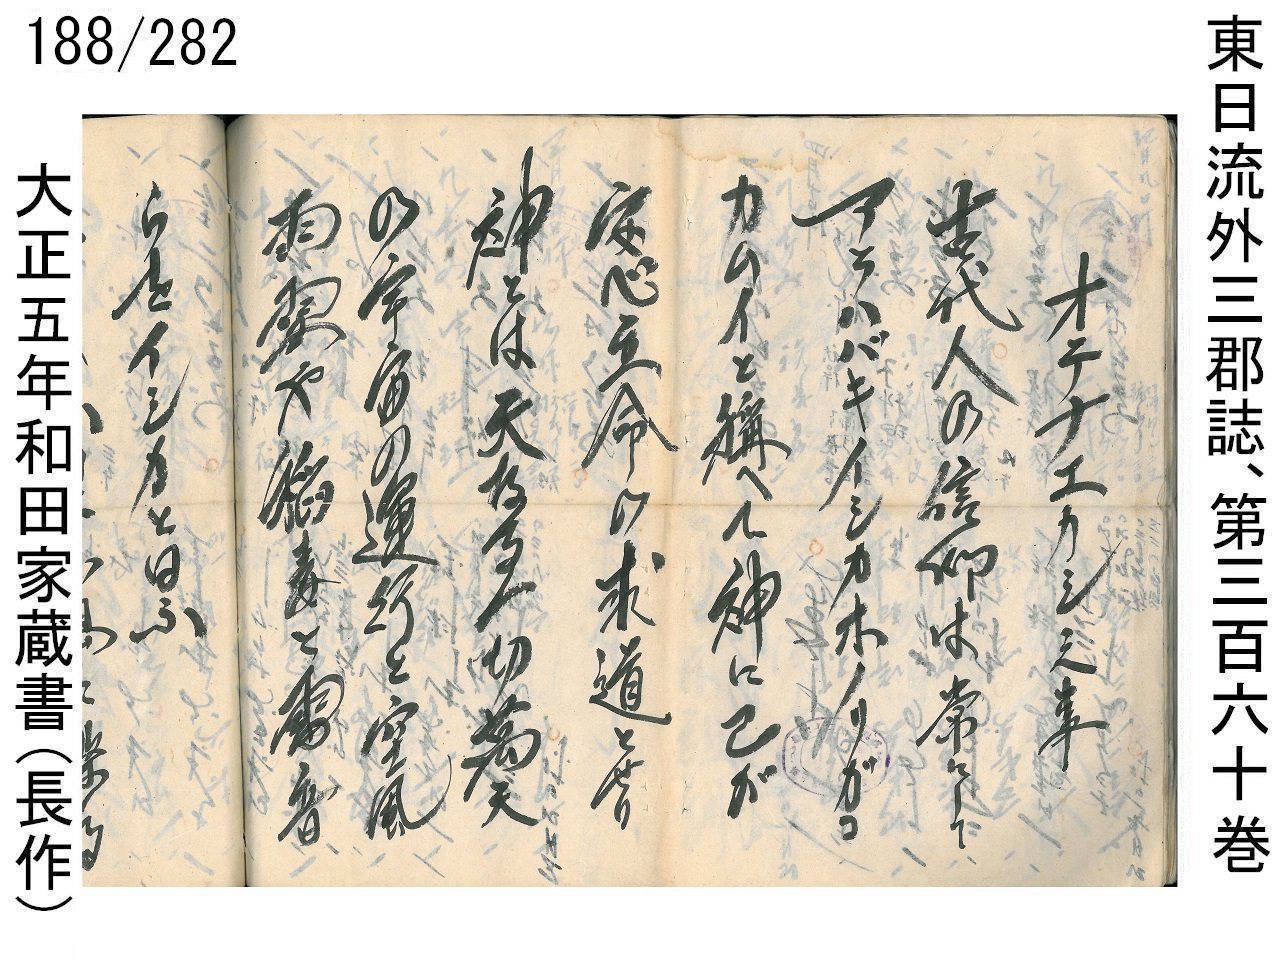 188/282
東日流外三郡誌、第三百六十巻
オテナエカシ之事
古代人の信仰は常にして
アラハバキイシカホノリガコ
カムイと稱へし神に己が
安心立命は求道とせり
神とは天なる一切萬天
の宇宙の運行と空風
雨雲や稲妻と雷音
らをイシカとは
大正五年和田家蔵書（長作）